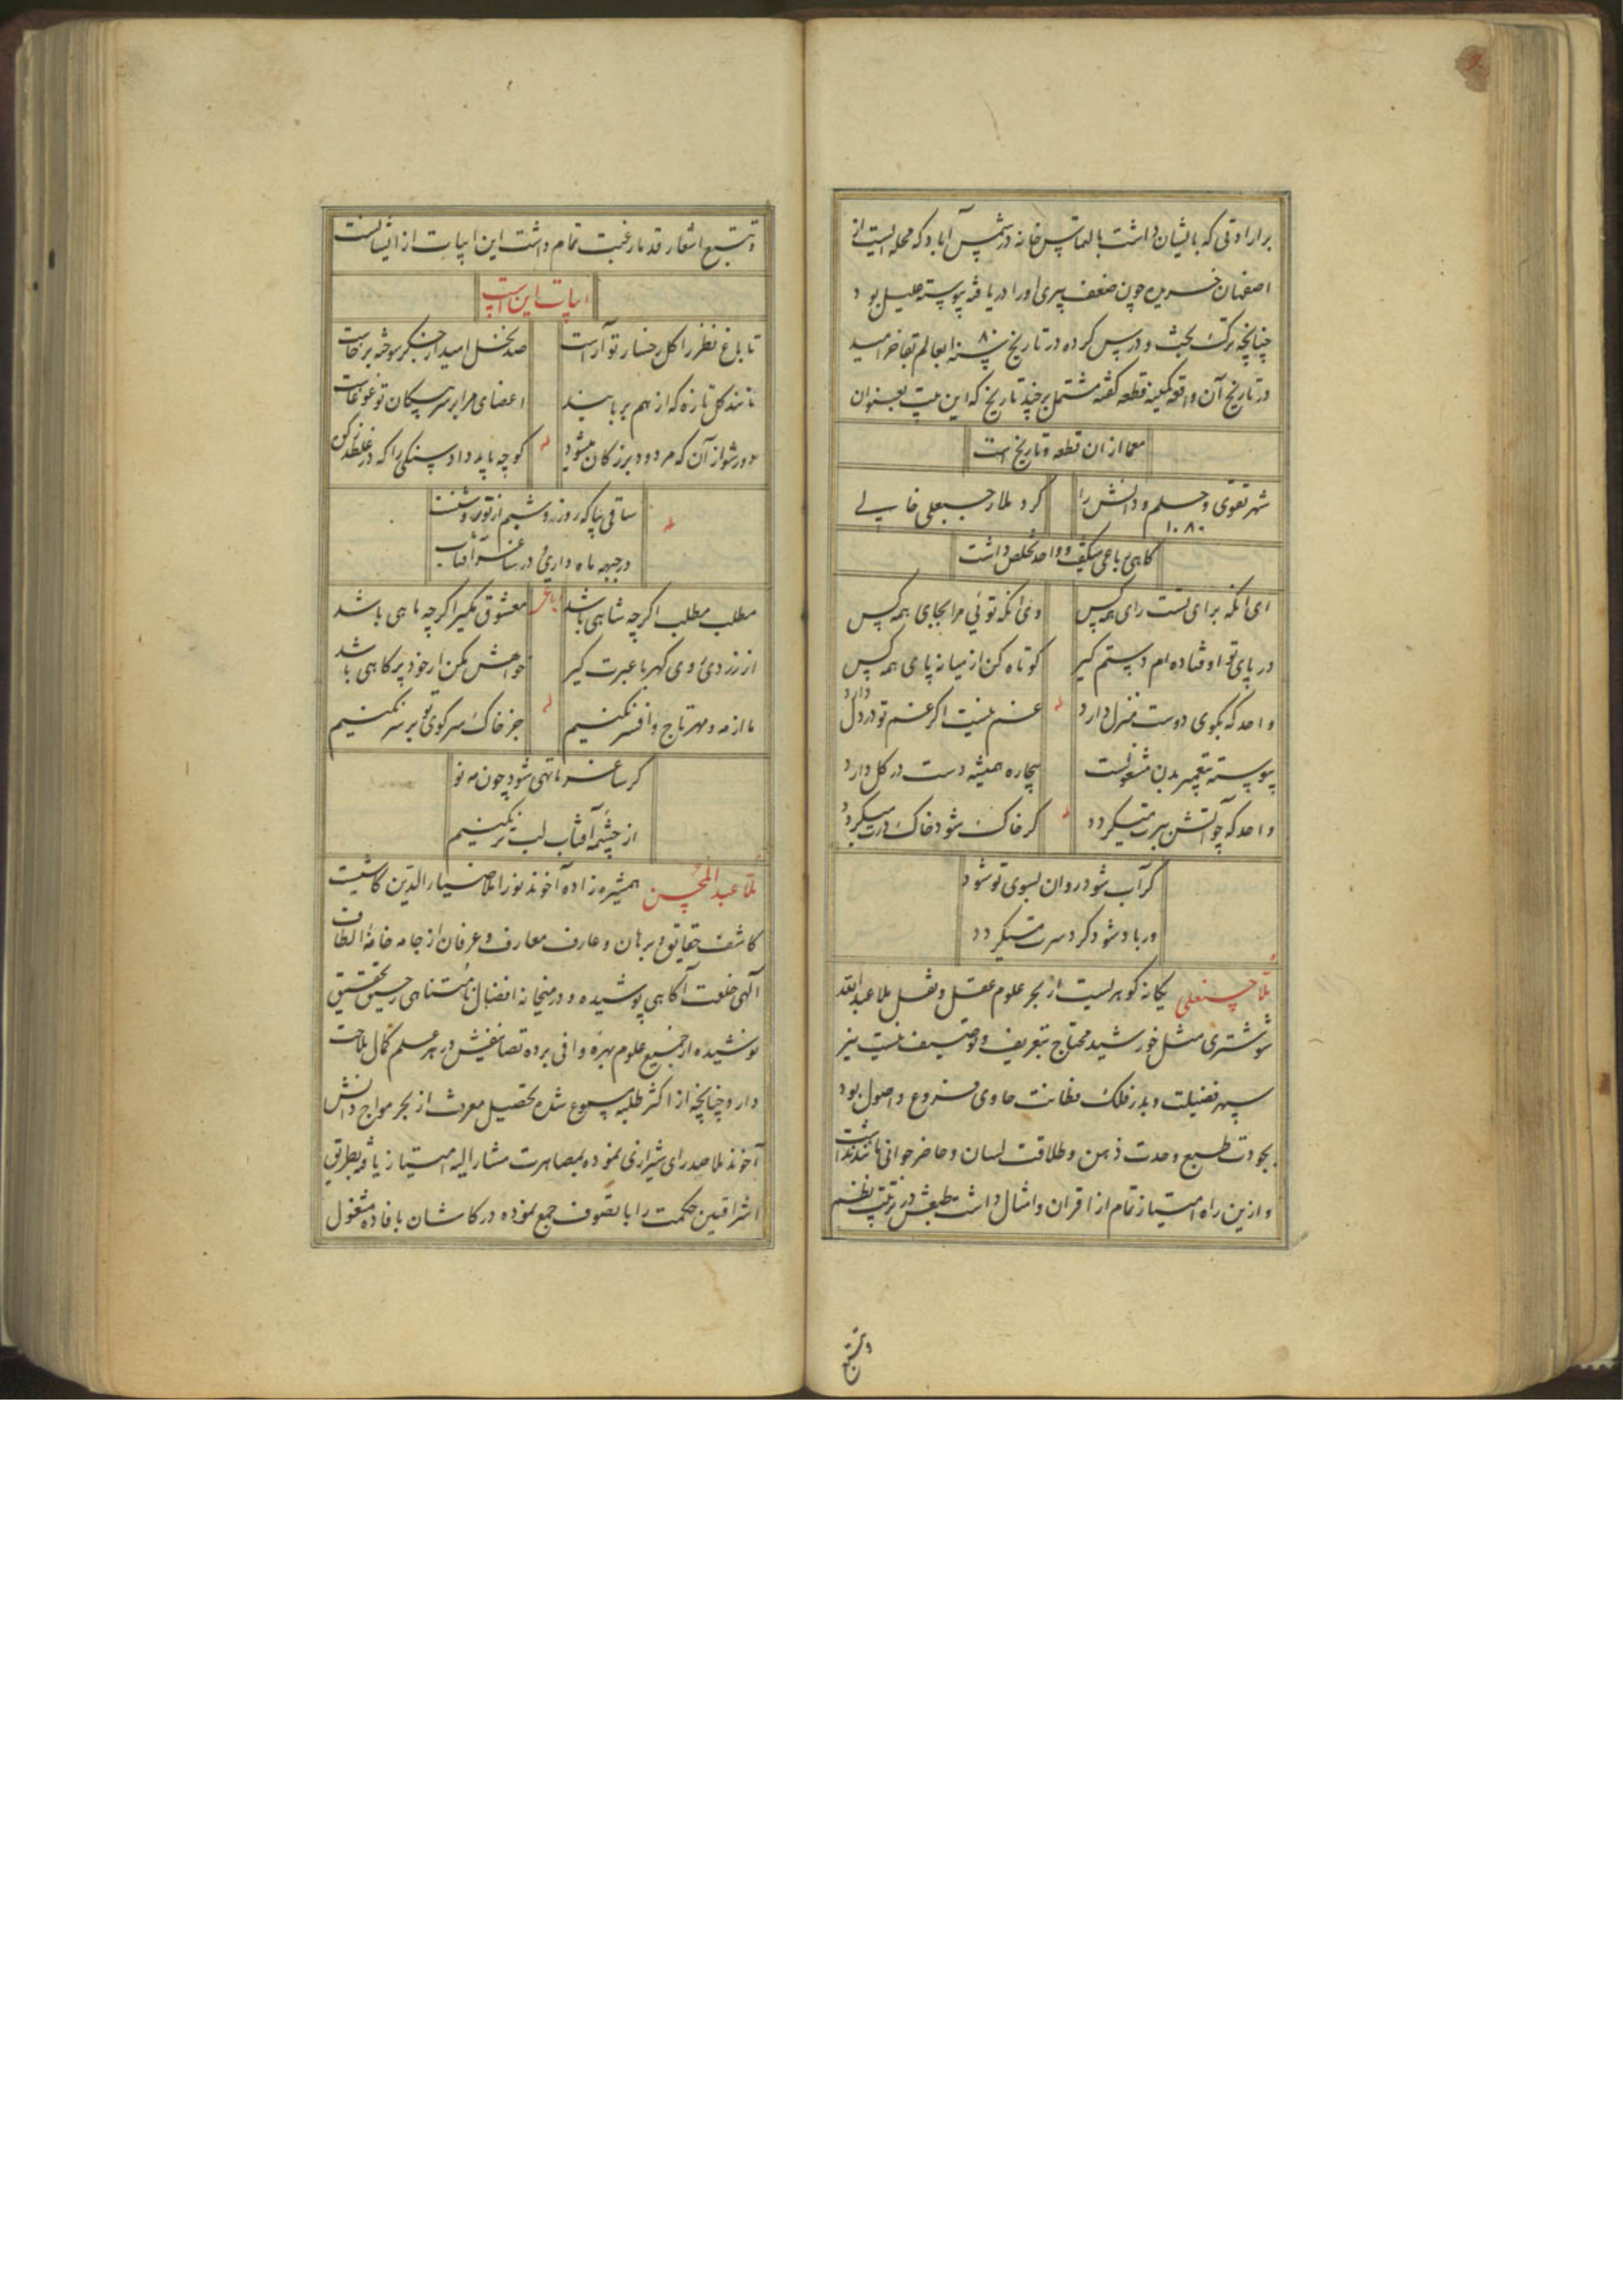 بر ارادتی که بایشان داشت بالتماس خانه در شمس آباد که محله ایست از
اصفهان خریده چون ضعف پیری او را دریافته پیوسته علیل بود
چنانچه ترک بحث و درس کرده در تاریخ سنه ۱۰۸۰ بعالم بقا خرامید
در تاریخ آن واقعه کمینه قطعه گفته مشتمل بر چند تاریخ که این بیت بعنوان
معما از ان قطعه و تاریخ است
شهر تقوی و حلم و دانش را
کرد ملا رجبعلی خالی
۱۰۸۰
کاهی رباعی میگفت و واحد تخلص داشت
ای آنکه برای تست رای همه کس
وی آنکه توئی مرا بجای همه کس
در پای تو اوفتاده ام دستم گیر
کوتاه کن از میانه پای همه کس
واحد که بکوی دوست منزل دارد
له
غم نیست اگر غم تو در دل دارد
پیوسته بتعمیر بدن مشغولست
بیچاره همیشه دست در گل دارد
واحد که چو آتش بسرت میگردد
له
گر خاک شود خاک درت میگردد
گر آب شود روان بسوی تو شود
ور باد شود گرد سرت میگردد
ملا حسنعلی یگانه گوهریست از بحر علوم عقل و نقل ملا عبدالله
شوشتری مثل خورشید محتاج بتعریف و توصیف نیست نیز
سپهر فضیلت و بدر فلک فطانت حاوی فروع و اصول بود
بجودت طبع وحدت ذهن و طلاقت لسان و حاضر جوابی مانند نداشت
و ازین راه امتیاز تمام از اقران و امثال داشت طبعش در ترتیب نظم
و تتبع
و تتبع اشعار قدما رغبت تمام داشت این ابیات از ایشانست
ابیات این است
تا باغ نظر را گل رخسار تو آراست
صد نخل امید از جگر سوخته برخاست
مانند گل تازه که از هم بربایند
اعضای مرا بر سر پیکان تو غوغاست
دور شو از آن که مردود بزرگان میشود
له
کوچه باید داد سنگی را که در غلطد ز کوه
له
ساقی بیا که روز و شبم از تو روشنست
در جبهه ماه داری و در ساغر آفتاب
مطلب مطلب اگرچه شاهی باشد
رباعی
معشوق مگیر اگرچه ماهی باشد
از زردی روی کهربا عبرت گیر
خواهش مکن ار خود پر کاهی باشد
ما از مه و مهر تاج و افسر نکنیم
له
جز خاک سر کوی تو بر سر نکنیم
گر ساغر ما تهی شود چون مه نو
از چشمه آفتاب لب تر نکنیم
ملا عبد المحسن همشیره زاده آخوند نورا ملا ضیاء الدین کاشیست
کاشف حقایق و برهان و عارف معارف و عرفان از جامه خانه الطاف
الهی خلعت آگاهی پوشیده و در میخانه افضال نامتناهی رحیق تحقیق
نوشیده از جمیع علوم بهره وافی برده تصانیفش در هر علم کمال ملاحت
دارد چنانچه از اکثر طلبه مسموع شده تحصیل معرفت از بحر مواج دانش
آخوند ملا صدرای شیرازی نموده بمصاهرت مشار الیه امتیاز یافته بطریق
اشراقیین حکمت را با تصوف جمع نموده در کاشان بافاده مشغول